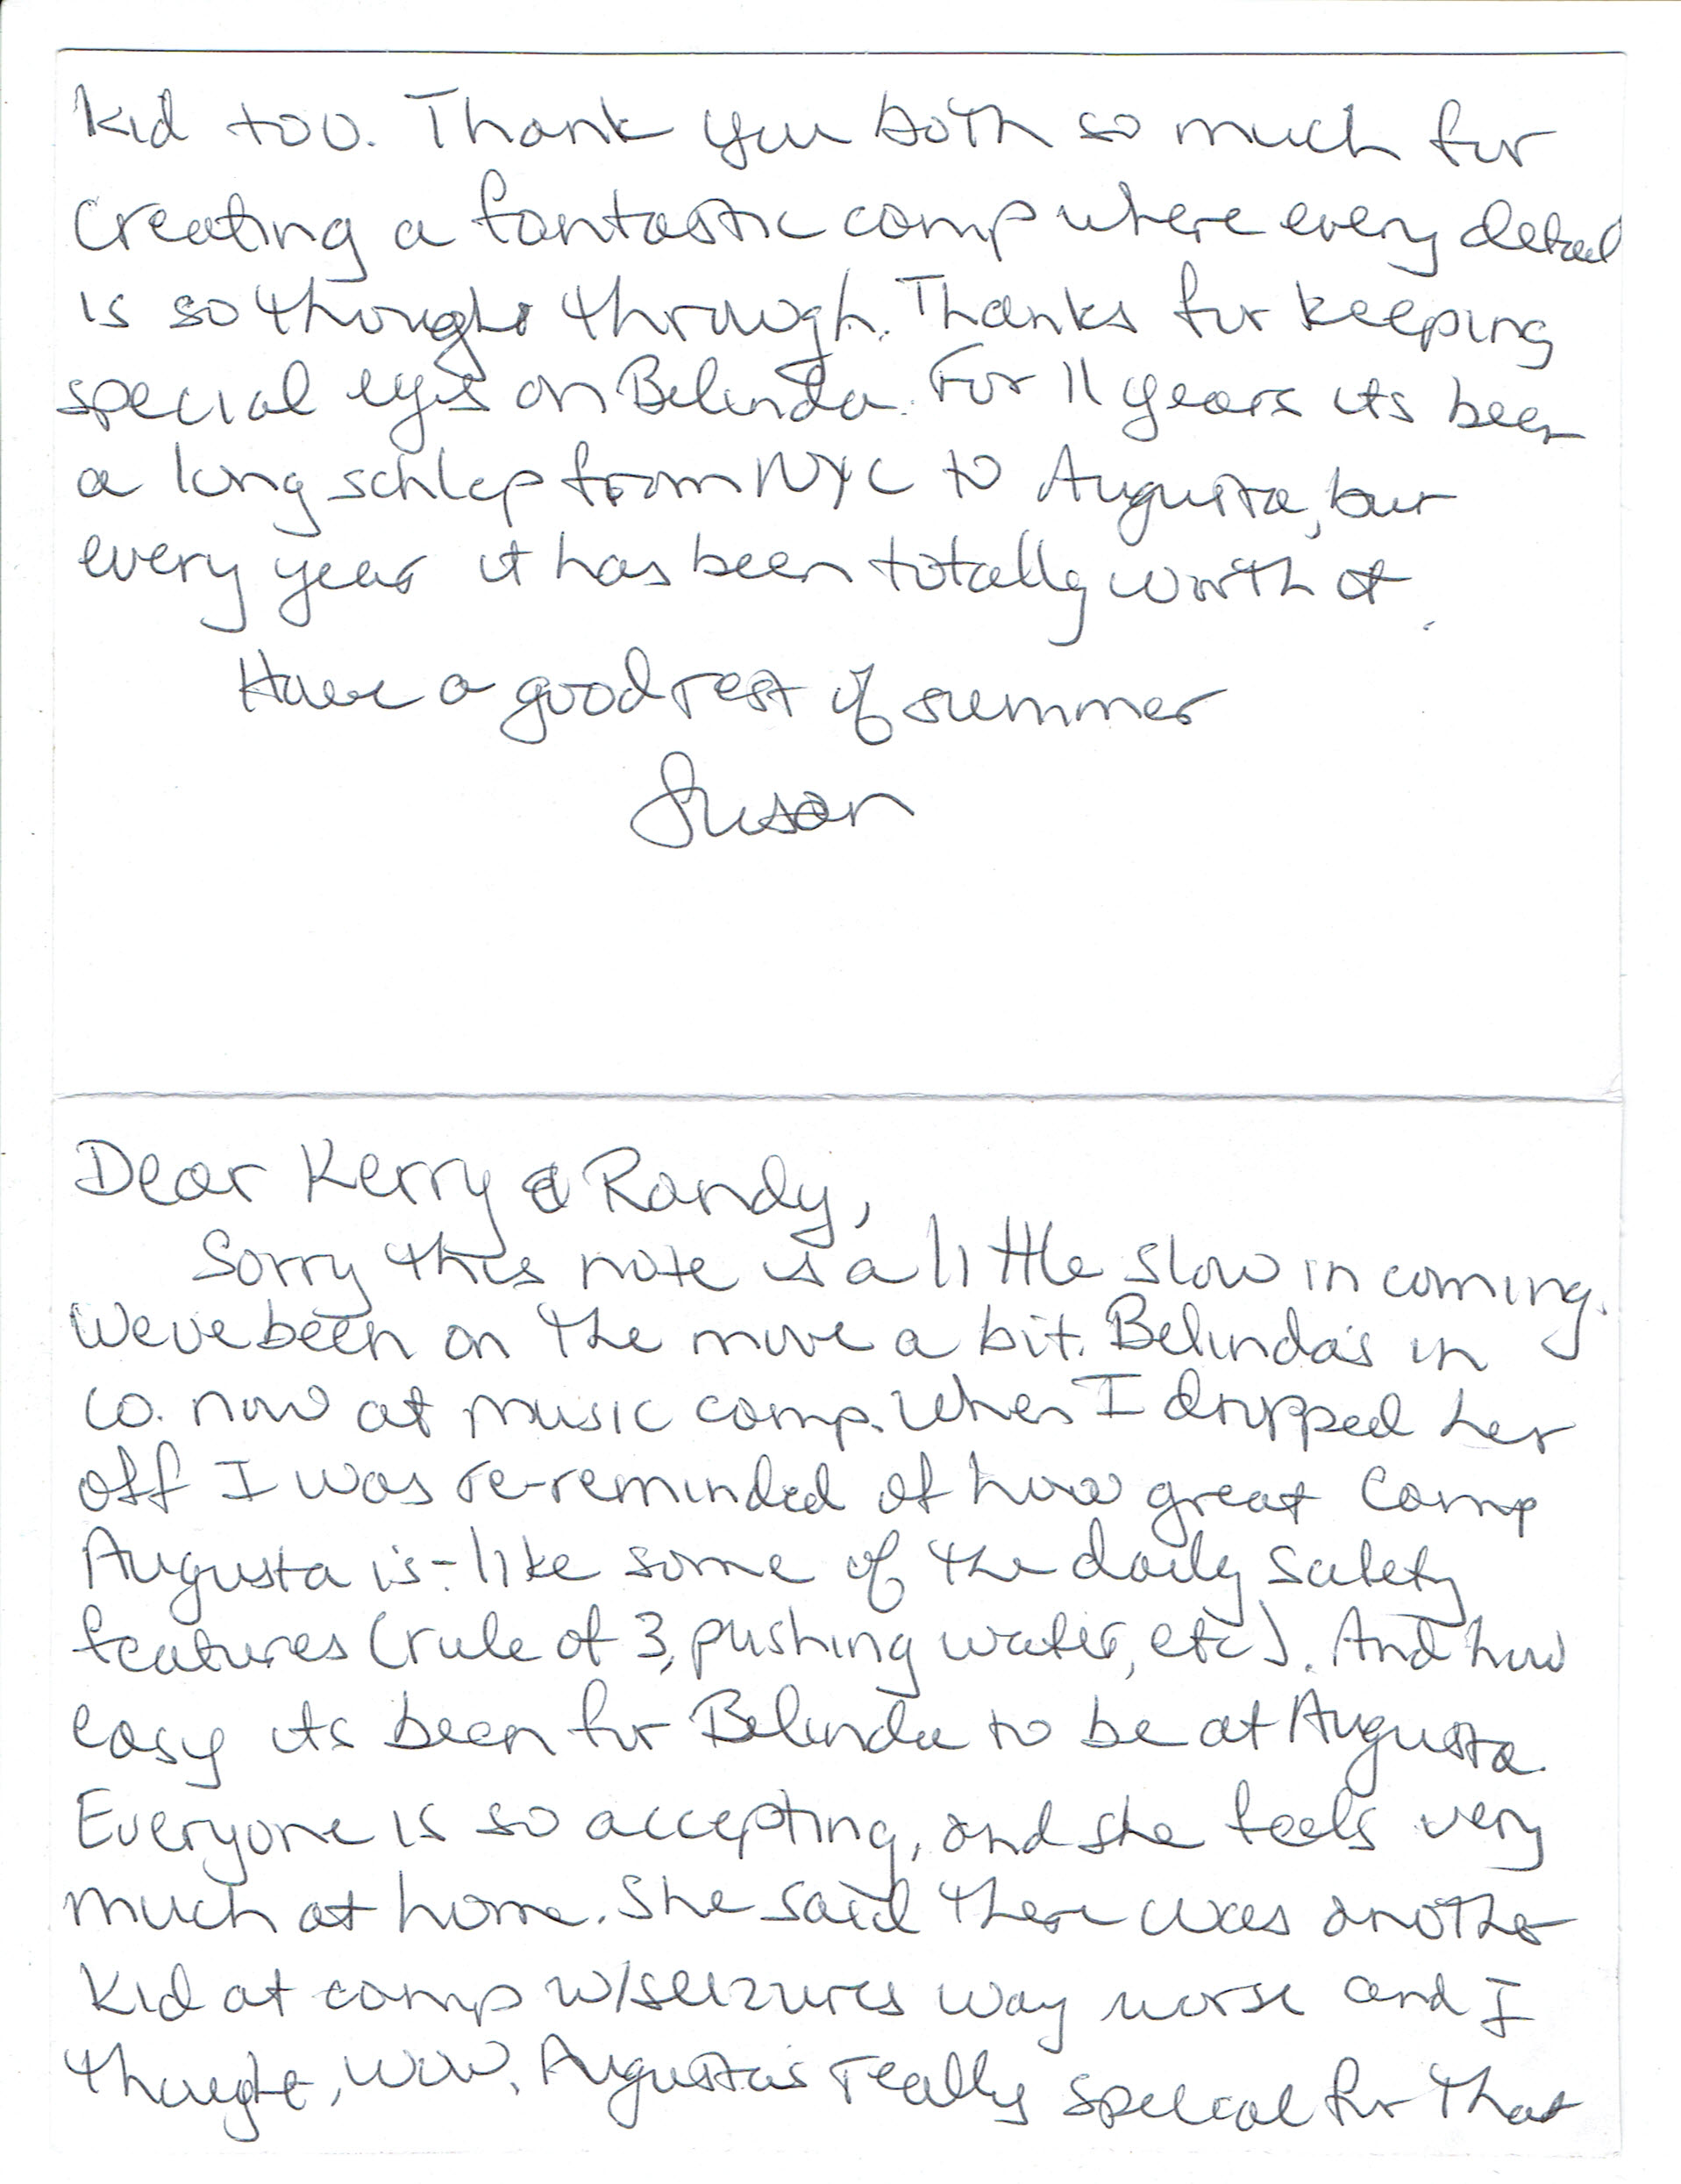 Kid too. Thank you both so much for
creating a fantastic camp where every detail
is so thought through. Thanks for keeping
special eyes on Belinda. For 11 years its been
a long schlep from NYC to Augusta, but
every year it has been totally worth it.
Have a good rest of summer
Susan
Dear Kerry & Randy,
Sorry this note is a little slow in coming.
Weve been on the move a bit. Belinda's in
CO. now at music camp. When I dropped her
off I was re-reminded of how great Camp
Augusta is - like some of the daily safety
features (rule of 3, pushing water, etc). And how
easy its been for Belinda to be at Augusta.
Everyone is so accepting, and she feels very
much at home. She said there was another
kid at camp w/seizures way worse and I
thought, wow, Augusta's really special for that